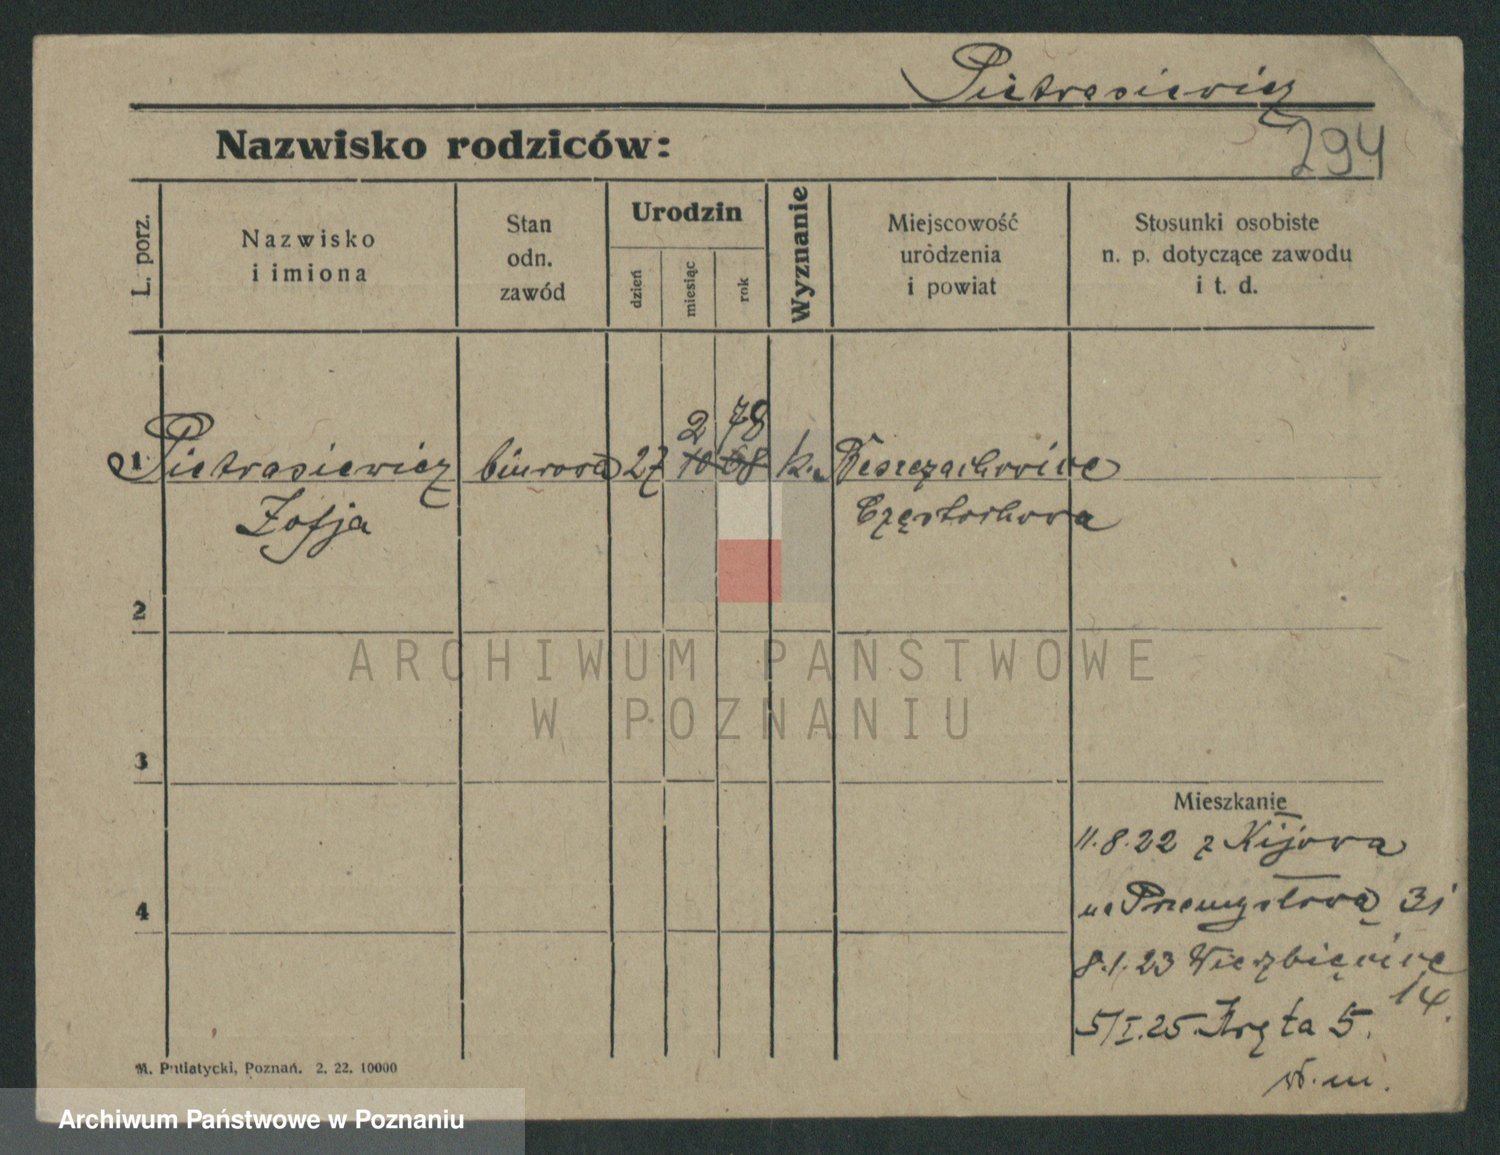 Pietrasiewicz
294
Nazwisko rodziców:
L. porz.
Nazwisko
i imiona
Stan
odn.
zawód
Urodzin
dzień
miesiąc
rok
Wyznanie
Miejscowość
uródzenia
i powiat
Stosunki osobiste
n. p. dotyczące zawodu
i t. d.
2 78
1 Pietrasiewicz biurowa 27 10 68 k.
Zofja Częstochowa
2
3
4
Mieszkanie
11.8.22 z Kijowa
na Przemysłową 31
8.1.23 Wierzbięcice
14.
5/I.25. Kręta 5.
w. m.
M. Putiatycki, Poznań. 2. 22. 10000
ARCHIWUM PAŃSTWOWE
W POZNANIU
Archiwum Państwowe w Poznaniu